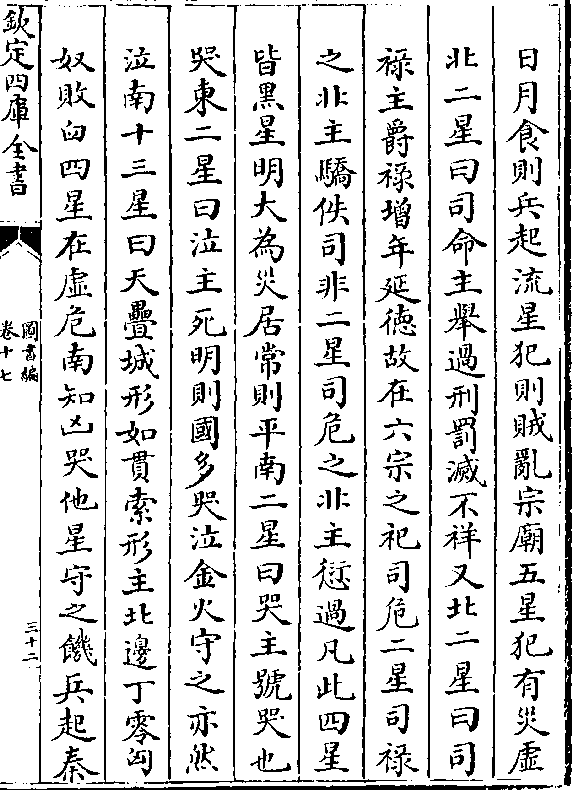 日月食則兵起流星犯則賊亂宗廟五星犯有災虛
北二星曰司命主舉過刑罰滅不祥又北二星曰司
祿主爵祿增年延德故在六宗之祀司危二星司祿
之北主驕佚司非二星司危之北主愆過凡此四星
皆黑星明大為災居常則平南二星曰哭主號哭也
哭東二星曰泣主死明則國多哭泣金火守之亦然
泣南十三星曰天壘城形如貫索形主北邊丁零匈
奴敗臼四星在虛危南知凶哭他星守之饑兵起秦
欽定四庫全書
圖書編
卷十七
三十二